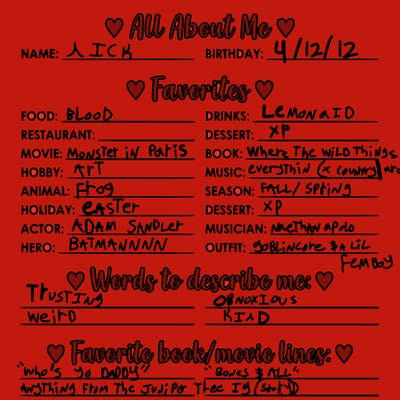 ♥ All About Me ♥
NAME: NICK BIRTHDAY: 4/12/12
♥ Favorites ♥
FOOD: BLOOD DRINKS: LEMONAID
RESTAURANT: DESSERT: XP
MOVIE: MONSTER IN PARIS BOOK: Where The WiLD Things
HOBBY: ArT MUSIC: everythin (x country) are
ANIMAL: Frog SEASON: FALL/SPring
HOLIDAY: eASTer DESSERT: XP
ACTOR: ADAM SANDLer MUSICIAN: NaeTHAN aPolo
HERO: BATMANNNN OUTFIT: goBLINCore & A LiL
FemBoy
♥ Words to describe me: ♥
TrUSTING OBNOXIOUS
weirD KIND
♥ Favorite book/movie lines: ♥
"WHO's yo DADDY" "BONES & ALL"
AnyTHing From THe